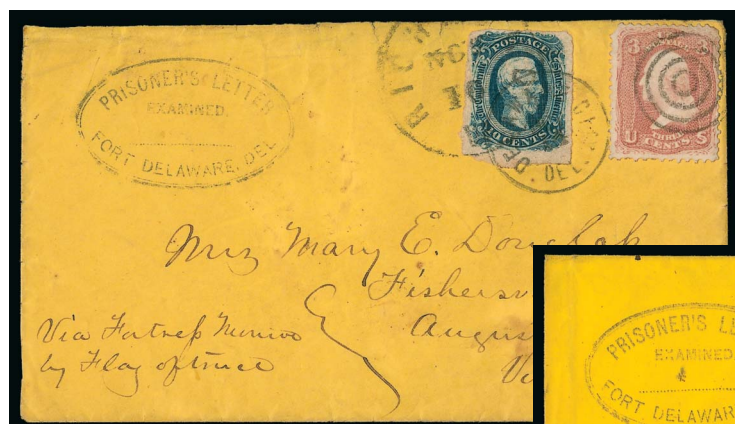 PRISONER'S LETTER
EXAMINED.
FORT DELAWARE. DEL.
RICH
POSTAGE
10 CENTS
DEL.
3
U THREE S
CENTS
Mrs Mary E. Dunlap
Fishersv
Augus
Va
Via Fortress Monroe
by Flag of truce
PRISONER'S LE
EXAMINED
FORT DELAWAR